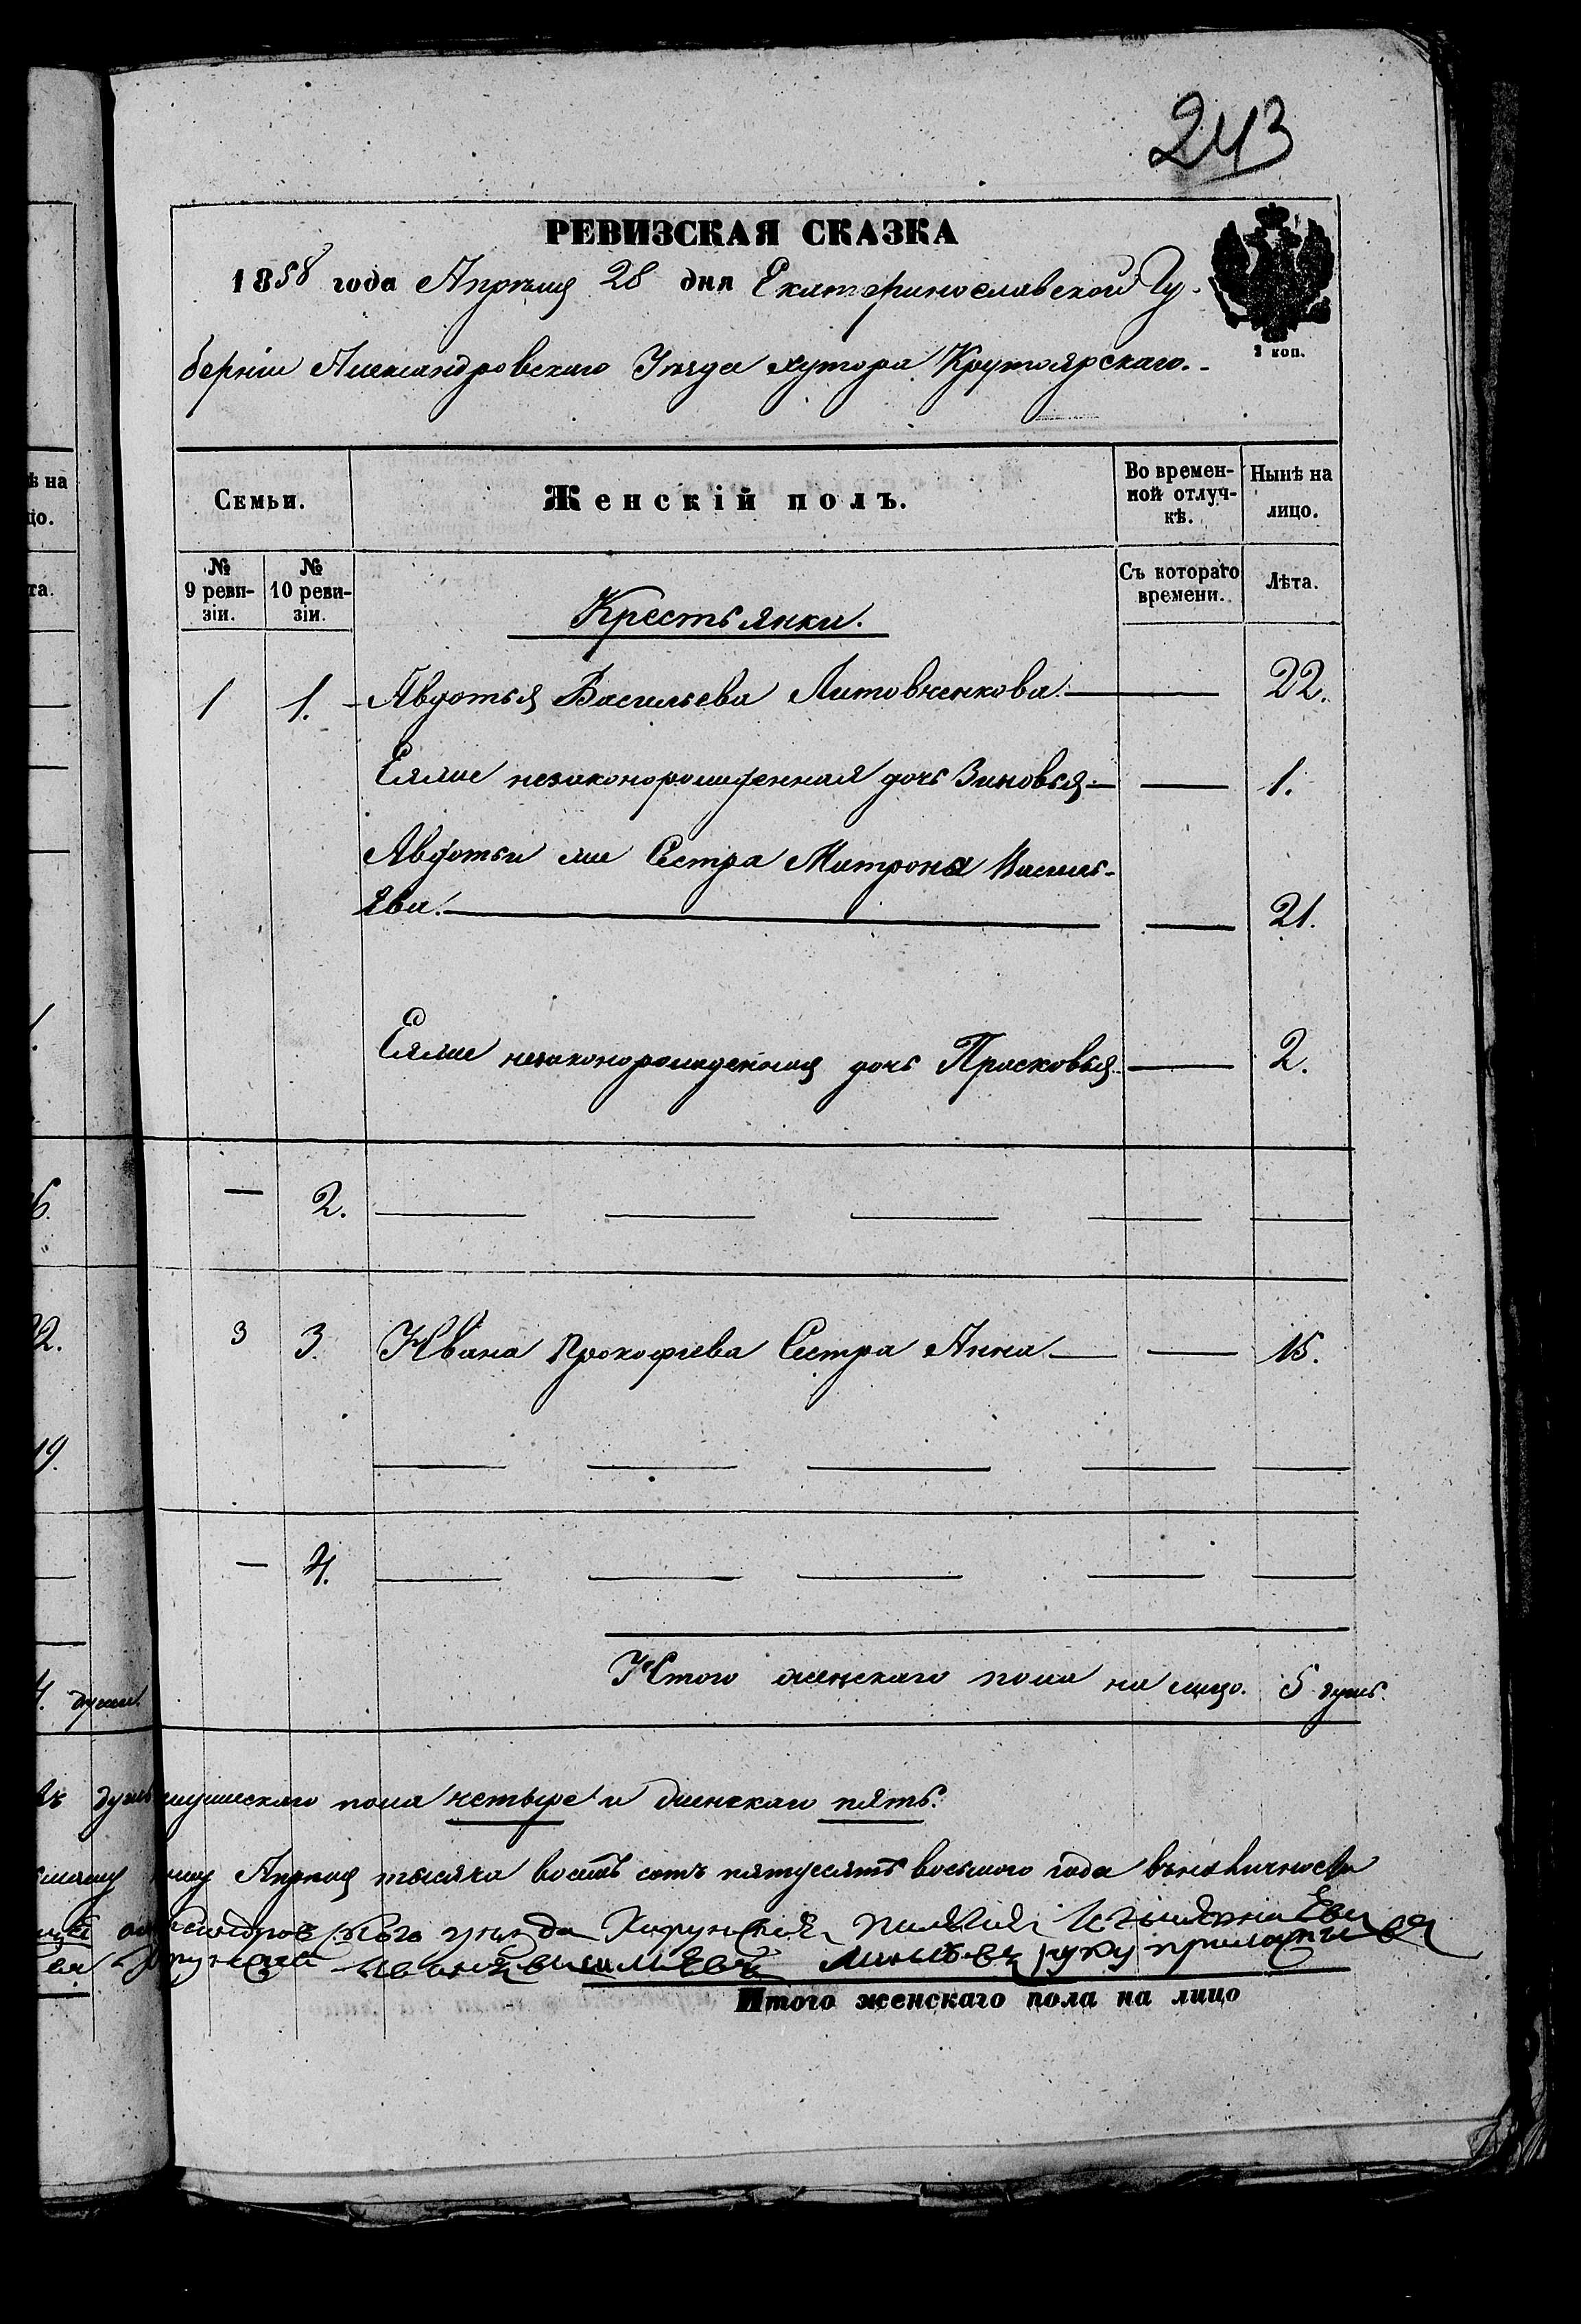 243
РЕВИЗСКАЯ СКАЗКА
1858 года Апрѣля 28 дня Екатеринославской Гу-
берніи Александровскаго Уѣзда хутора Крутоярскаго.-
2 коп.
Семьи. Женскій полъ. Во времен-ной отлуч-кѣ. Нынѣ на лицо.
№ 9 реви-зіи. № 10 реви-зіи. Съ котораго времени. Лѣта.
Крестьянки.
1 1. Авдотья Васильева Литовченкова 22.
Ея же незаконорожденная дочь Зиновья 1.
Авдотьи же Сестра Матрона Василь-
ева. 21.
Ея же незаконорожденная дочь Прасковья 2.
— 2.
3 3. Ивана Прокофьева Сестра Анна 15.
— 4.
Итого женскаго пола на лицо. 5 душъ.
душъ мужескаго пола четыре и женскаго пять.
Апрѣля тысяча восемь сотъ пятдесятъ восьмого года
уѣзда руку приложилъ
Итого женскаго пола на лицо
ѣ на
цо.
та.
6.
22.
19.
4. души.